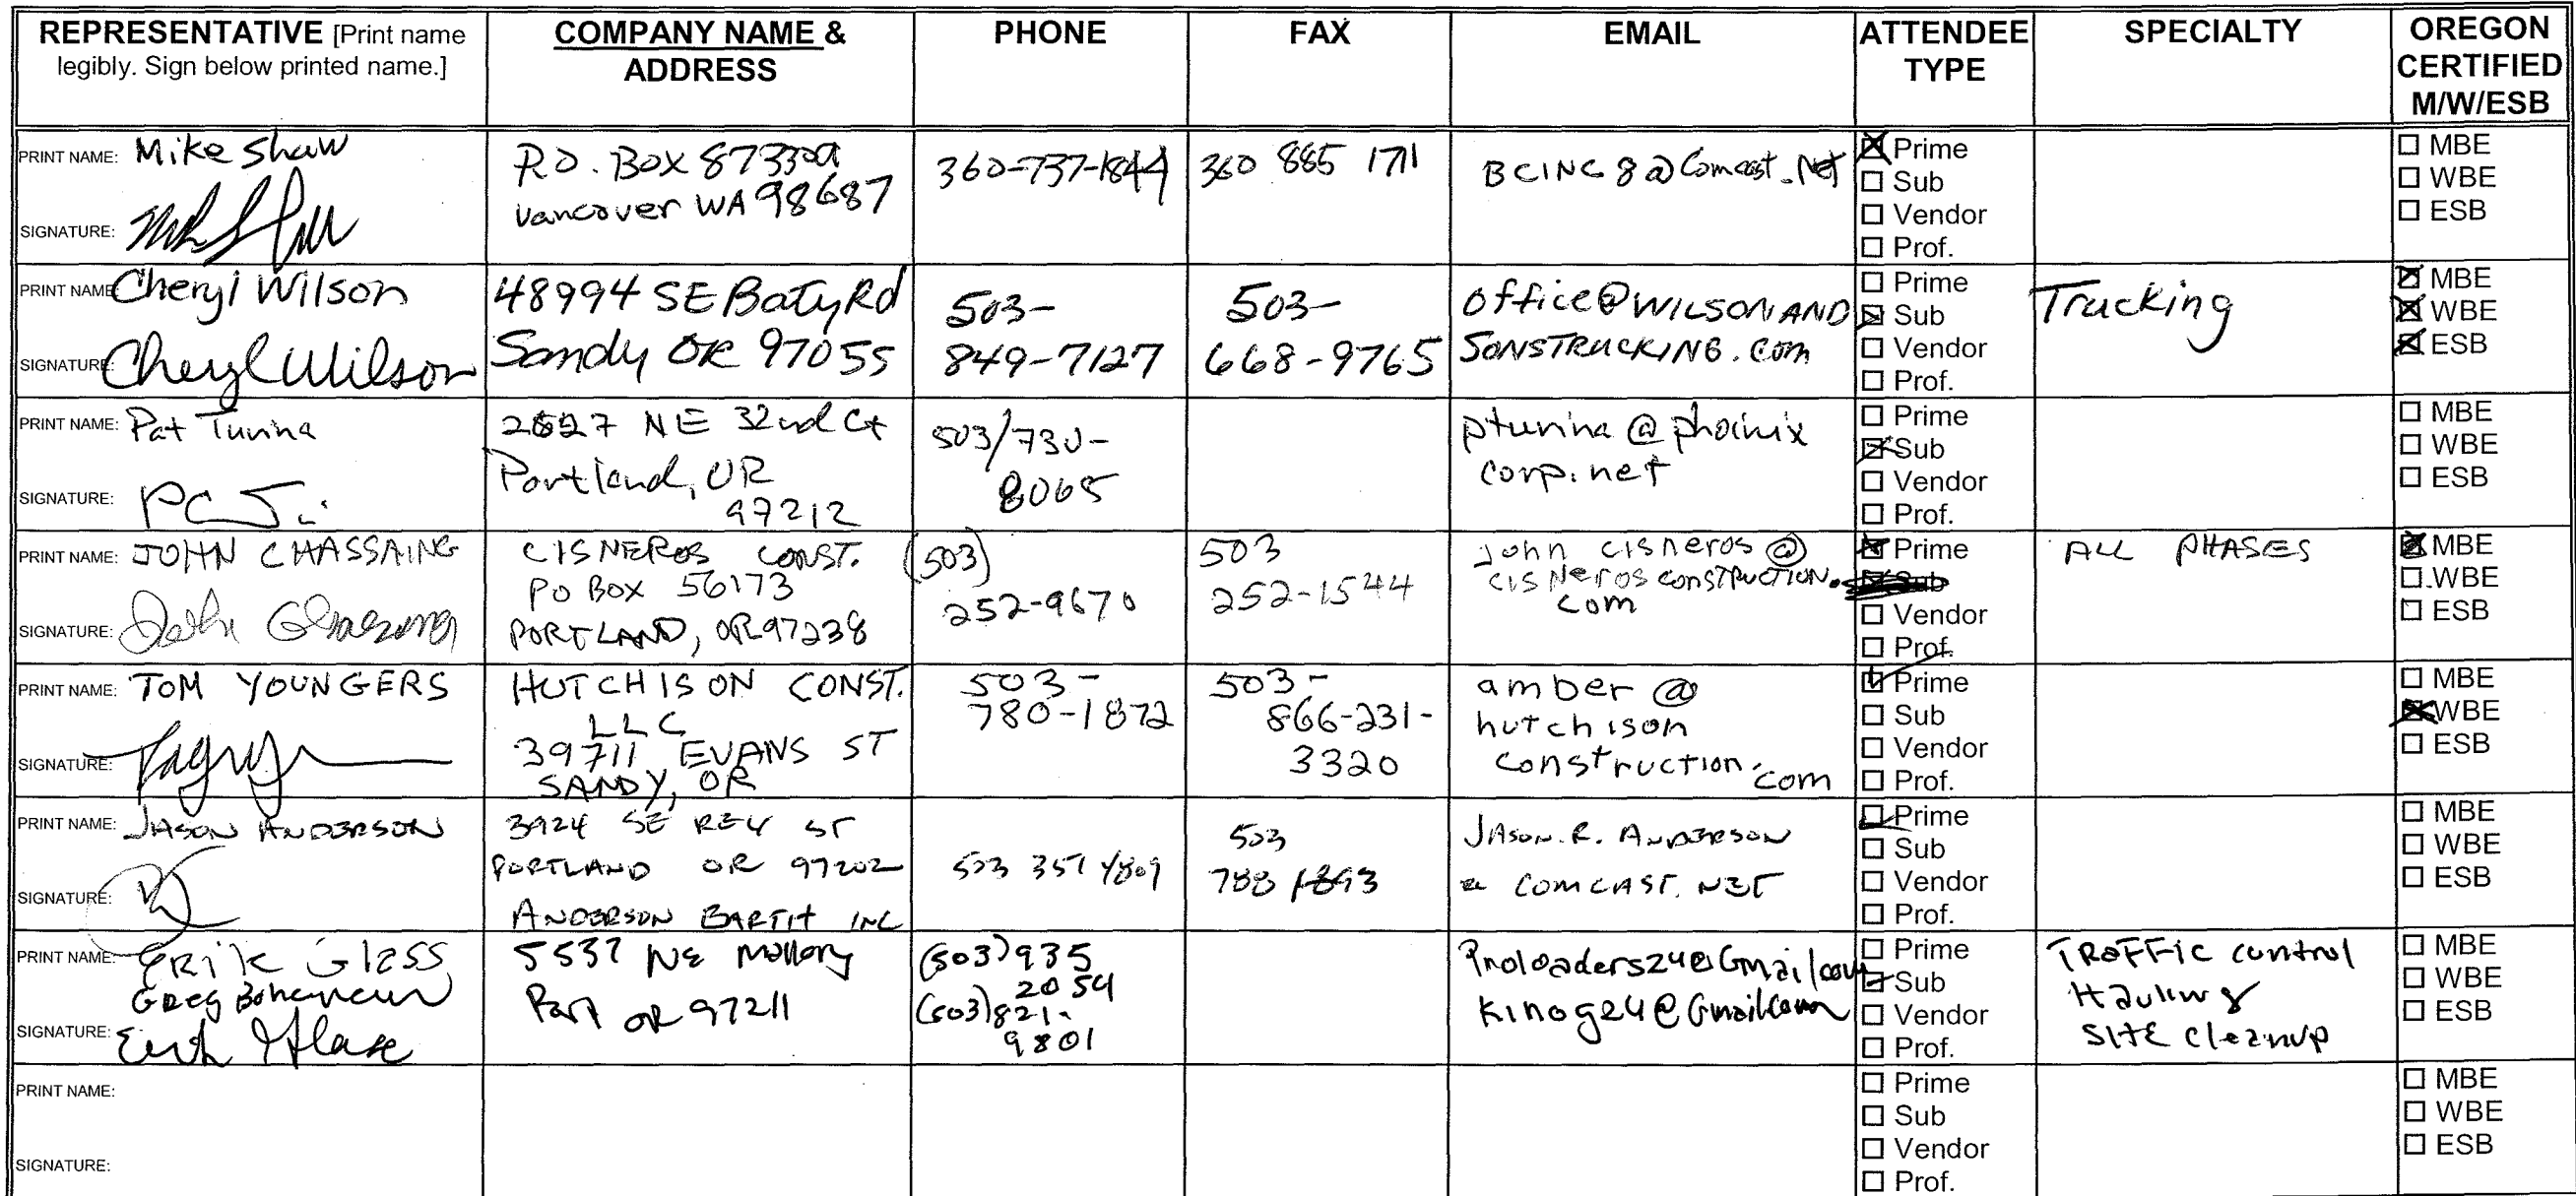 REPRESENTATIVE [Print name legibly. Sign below printed name.]
COMPANY NAME & ADDRESS
PHONE
FAX
EMAIL
ATTENDEE TYPE
SPECIALTY
OREGON CERTIFIED M/W/ESB
PRINT NAME: Mike Shaw
SIGNATURE:
P.O. Box
Vancouver WA 98687
360-737-1844
360 885 1711
BCINC8@Comcast.Net
Prime
Sub
Vendor
Prof.
MBE
WBE
ESB
PRINT NAME Cheryl Wilson
SIGNATURE: Cheryl Wilson
48994 SE Baty Rd
Sandy OR 97055
503-
849-7127
503-
668-9765
office@WILSONAND
SONSTRUCKING.com
Prime
Sub
Vendor
Prof.
Trucking
MBE
WBE
ESB
PRINT NAME: Pat Turina
SIGNATURE:
NE 32nd Ct
Portland, OR
97212
503/730-
8065
pturina@phoinix
corp.net
Prime
Sub
Vendor
Prof.
MBE
WBE
ESB
PRINT NAME: JOHN CHASSAING
SIGNATURE:
CISNEROS CONST.
PO BOX 56173
PORTLAND, OR 97238
(503)
252-9670
503
252-1544
john cisneros@
cisNeros CONSTRUCTION.
com
Prime
Sub
Vendor
Prof.
ALL PHASES
MBE
WBE
ESB
PRINT NAME: TOM YOUNGERS
SIGNATURE:
HUTCHISON CONST.
LLC
39711 EVANS ST
SANDY, OR
503-
780-1872
503-
866-231-
3320
amber@
hutchison
construction.
com
Prime
Sub
Vendor
Prof.
MBE
WBE
ESB
PRINT NAME: JASON ANDERSON
SIGNATURE:
3924 SE ST
PORTLAND OR 97202
ANDERSON INC
503 351 4809
503
788 1893
JASON.R.ANDERSON
@ COMCAST.NET
Prime
Sub
Vendor
Prof.
MBE
WBE
ESB
PRINT NAME: ERik Glass
Greg
SIGNATURE: Erik Glass
5537 NE Mallory
Port OR 97211
(503)935
2054
(503)821-
9801
Proloaders24@Gmail.com
Kinoge4@Gmail.com
Prime
Sub
Vendor
Prof.
TRAFFIC control
Hauling
SITE Cleanup
MBE
WBE
ESB
PRINT NAME:
SIGNATURE:
Prime
Sub
Vendor
Prof.
MBE
WBE
ESB